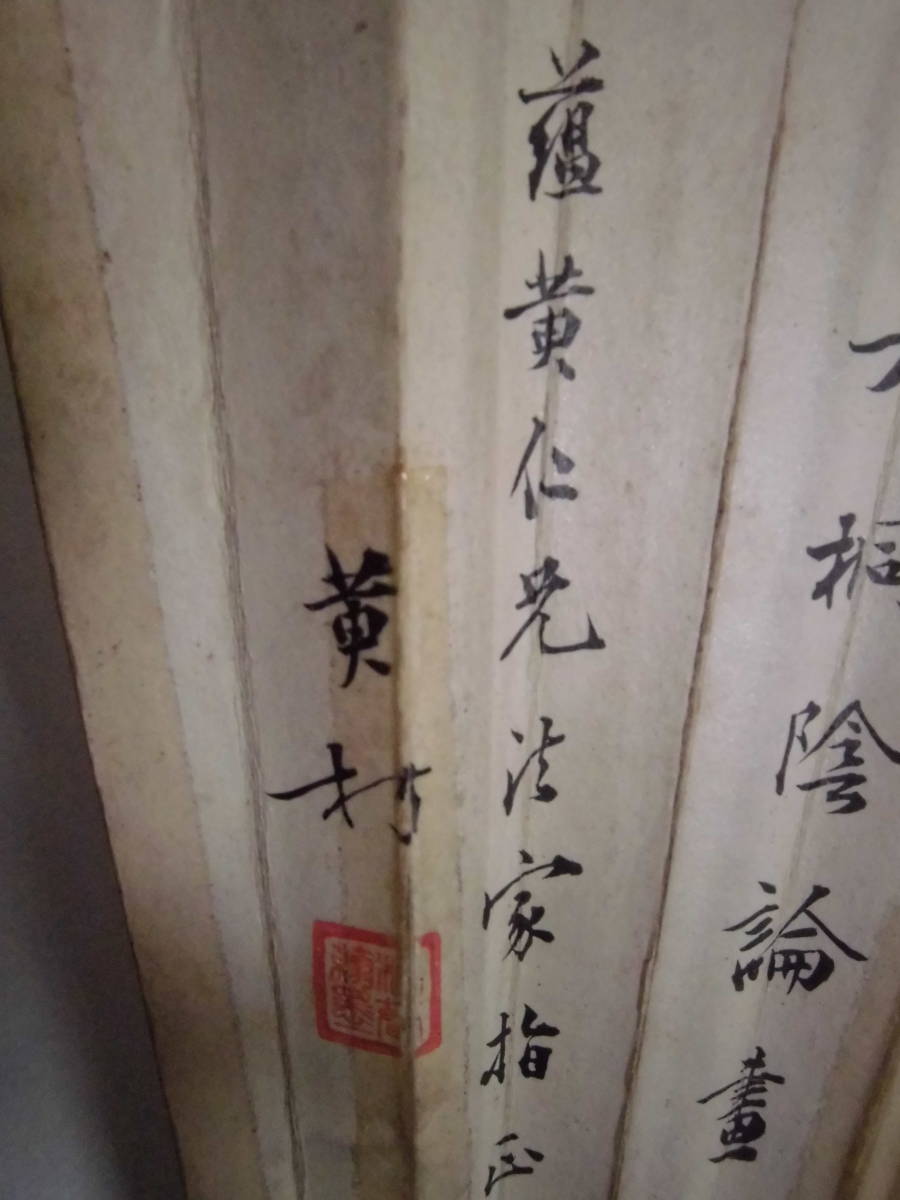 桐陰論畫
蘊黄仁兄法家指正
黄